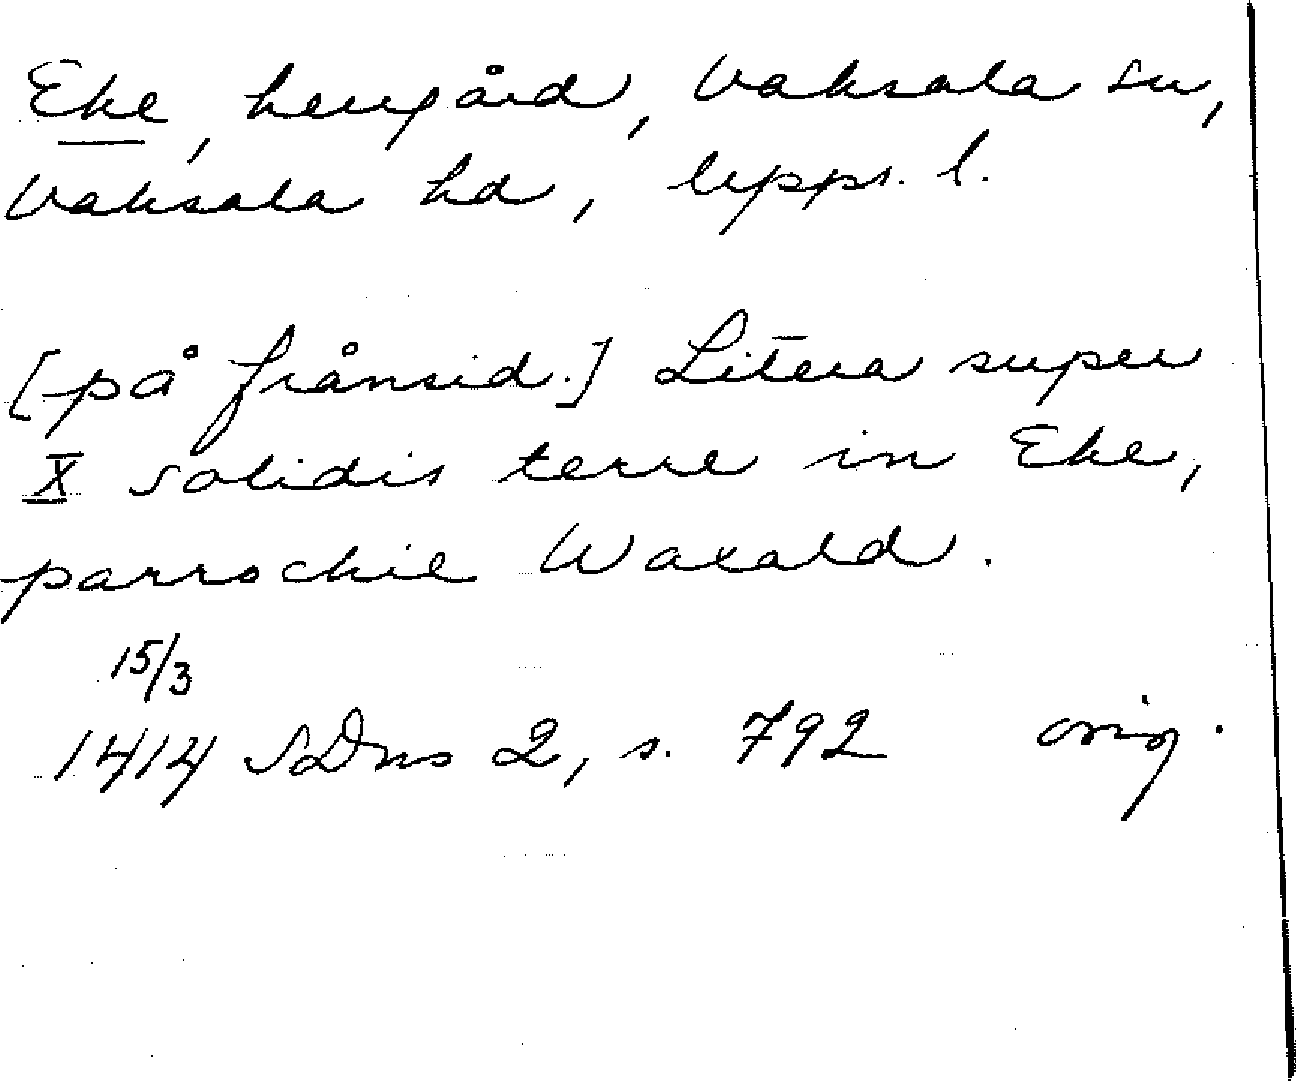 Eke, herrgård, Vaksala sn,
Vaksala hd, Upps. l.
[på frånsid.] Litera super
X solidis terre in Eke,
parrochie Waxald.
15/3
1414 SDns 2, s. 792 orig.